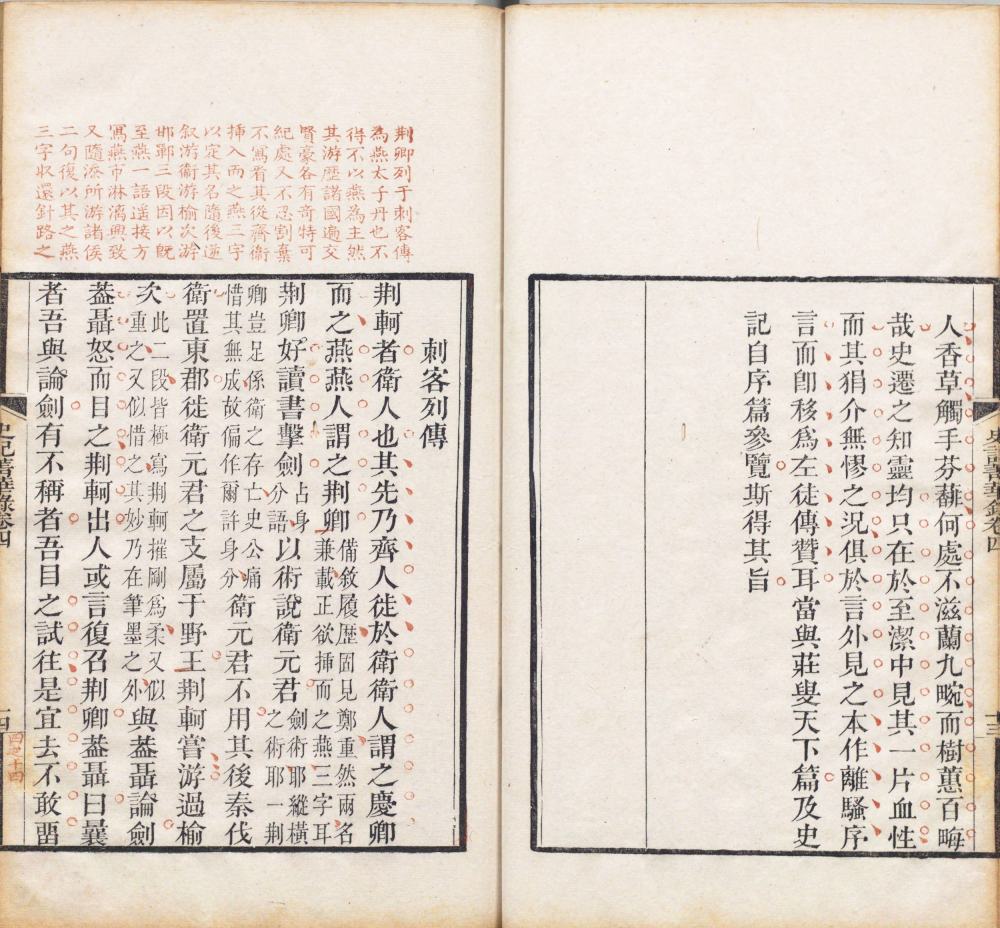 人香草觸手芬蕕何處不滋蘭九畹而樹蕙百畮
哉史遷之知靈均只在於至潔中見其一片血性
而其狷介無憀之況俱於言外見之本作離騷序
言而卽移爲左徒傳贊耳當與莊叟天下篇及史
記自序篇參覽斯得其旨
史記菁華錄卷四
十三
荆卿列于刺客傳
為燕太子丹也不
得不以燕為主然
其游歷諸國遍交
賢豪各有奇特可
紀處又不忍割棄
不寫看其從齊衞
挿入而之燕三字
以定其名隨後逆
叙游衞游榆次游
邯鄲三段因以旣
至燕一語遥接方
寫燕市淋漓興致
又隨添所游諸侯
二句復以其之燕
三字收還針路之
刺客列傳
荆軻者衞人也其先乃齊人徙於衞衞人謂之慶卿
而之燕燕人謂之荆卿備敘履歷固見鄭重然兩名兼載正欲挿而之燕三字耳
荆卿好讀書擊劍占身分語以術說衞元君劍術耶縱橫之術耶一荆
卿豈足係衞之存亡史公痛惜其無成故偏作爾許身分衞元君不用其後秦伐
衞置東郡徙衞元君之支屬于野王荆軻嘗游過榆
次此二段皆極寫荆軻摧剛爲柔又似重之又似惜之其妙乃在筆墨之外與葢聶論劍
葢聶怒而目之荆軻出人或言復召荆卿葢聶曰曩
者吾與論劍有不稱者吾目之試往是宜去不敢畱
史記菁華錄卷四
十四
四之十四